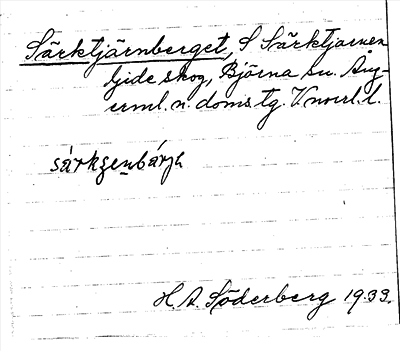 Särktjärnberget, S Särktjärnen
Ljide skog, Björna sn. Ång-
erml. n. doms. tg. V.norrl. l.
särkʒenbärjə
H. A. Söderberg 1933.